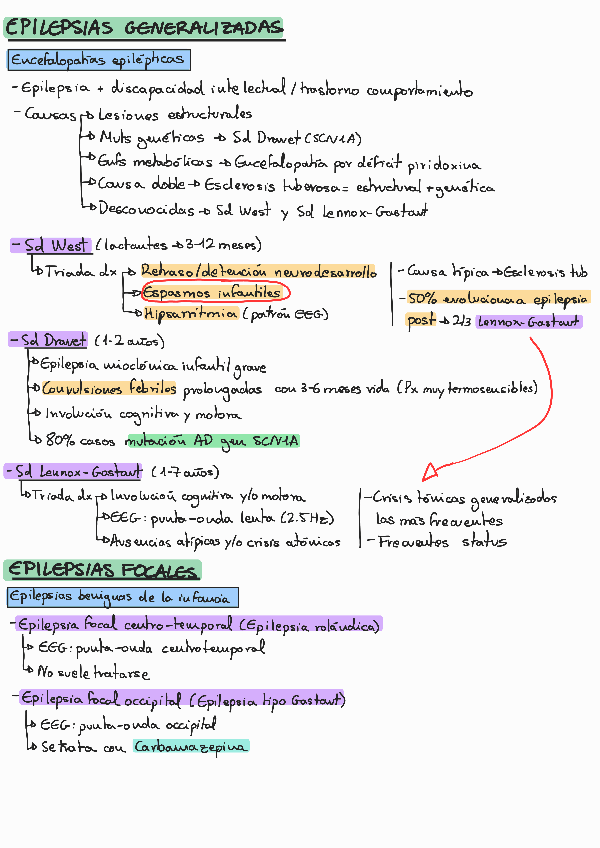 EPILEPSIAS GENERALIZADAS
Encefalopatías epilépticas
- Epilepsia + discapacidad intelectual / trastorno comportamiento
- Causas → Lesiones estructurales
→ Muts genéticas → Sd Dravet (SCN1A)
→ Enfs metabólicas → Encefalopatía por déficit piridoxina
→ Causa doble → Esclerosis tuberosa = estructural + genética
→ Desconocidas → Sd West y Sd Lennox-Gastaut
- Sd West (lactantes → 3-12 meses)
→ Triada dx → Retraso/detención neurodesarrollo
→ Espasmos infantiles
→ Hipsarritmia (patrón EEG)
- Causa típica → Esclerosis tub
- 50% evoluciona a epilepsia
post → 2/3 Lennox-Gastaut
- Sd Dravet (1-2 años)
→ Epilepsia mioclónica infantil grave
→ Convulsiones febriles prolongadas con 3-6 meses vida (Px muy termosensibles)
→ Involución cognitiva y motora
→ 80% casos mutación AD gen SCN1A
- Sd Lennox-Gastaut (1-7 años)
→ Triada dx → Involución cognitiva y/o motora
→ EEG: punta-onda lenta (2.5Hz)
→ Ausencias atípicas y/o crisis atónicas
- Crisis tónicas generalizadas
las más frecuentes
- Frecuentes status
EPILEPSIAS FOCALES
Epilepsias benignas de la infancia
- Epilepsia focal centro-temporal (Epilepsia rolándica)
→ EEG: punta-onda centrotemporal
→ No suele tratarse
- Epilepsia focal occipital (Epilepsia tipo Gastaut)
→ EEG: punta-onda occipital
→ Se trata con Carbamazepina